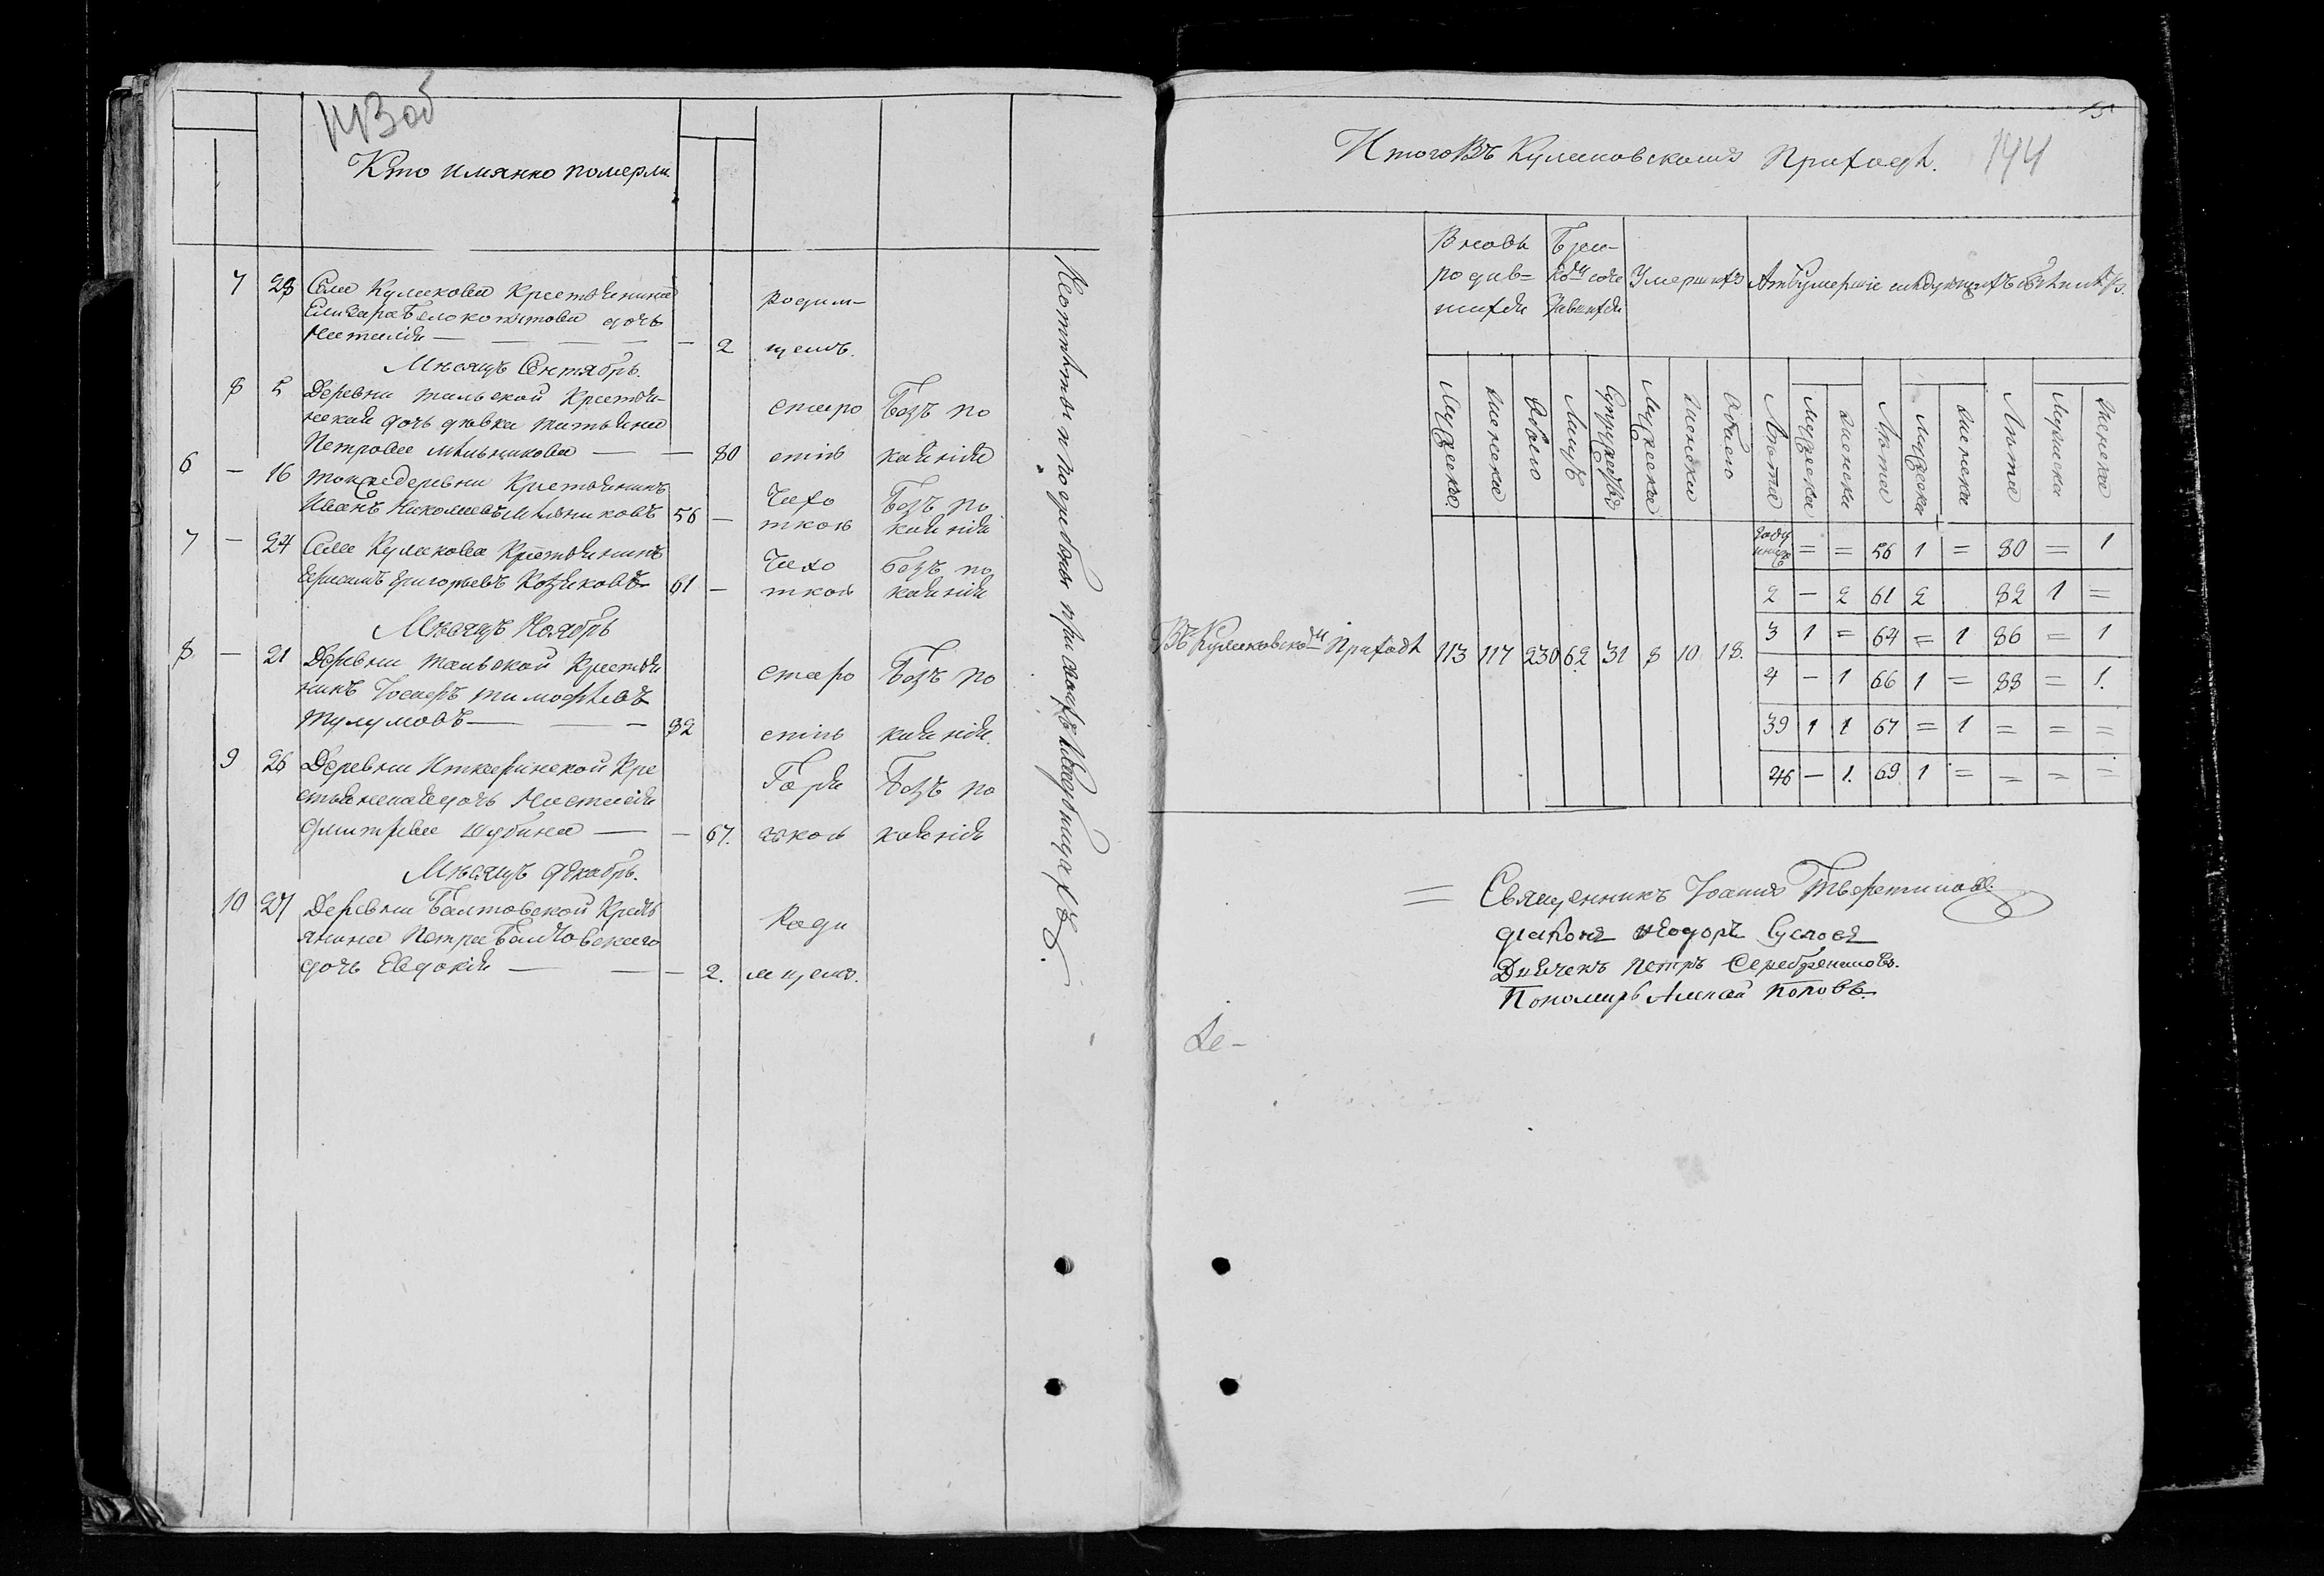 143 об
Кто имянно померли
7 28 Села Кулакова Крестьянина
Елизара Белокопытова дочь
Наталія — — 2
родим-
цемъ.
Мѣсяцъ Сентябрь.
8 5 Деревни Тальской Крестья-
нская дочь дѣвка Татьяна
Петрова Мѣльникова — — 80
старо
стію
Безъ по
каянія
6 — 16 Тойже деревни Крестьянинъ
Иванъ Николаевъ Мѣльниковъ 56 —
Чахо
ткою
Безъ по
каянія
7 — 24 Села Кулакова Крестьянинъ
Герасимъ Григорьевъ 61 —
Чахо
ткою
безъ по
каянія
Мѣсяцъ Ноябрь
8 — 21 Деревни Тальской Крестья
нинъ Іосифъ Тимофѣевъ
Тулумовъ — — 82
старо
стію
Безъ по
каянія.
9 26 Деревни Крe
стьянская дочь Настасія
Дмитрева Шубина — — 67.
Горя
чкою
Безъ по
каянія
Мѣсяцъ Декабрь.
10 27 Деревни Балтовской Кресть
янина Петра Балтовскаго
дочь Евдокія — — — 2.
Роди
мцемъ.
и погребены при своихъ кладбищахъ.
15
Итого Въ Кулаковскомъ Приходѣ.
144
Вновь
родив-
шихся
Бра-
комъ соче
тавшихся
Умершихъ
Мужеска
женска
Обоего
Лицъ
Супружествъ
Мужеска
женска
Обоего
Лѣта
мужеска
женска
Лѣта
мужеска
женска
Лѣта
мужеска
женска
= = 56 1 = 80 = 1
2 — 2 61 2 82 1 =
3 1 = 64 = 1 86 = 1
Въ Кулаковскомъ Приходѣ 113 117 230 62 31 8 10 18.
4 — 1 66 1 = 88 = 1.
39 1 1 67 = 1 = = =
46 — 1. 69 1 = = = =
= Священникъ Іоаннъ Тверетиновъ.
діаконъ Ѳеодоръ Сусловъ
Дьячекъ Петръ Серебрениковъ.
Пономарь Алексѣй Поповъ.